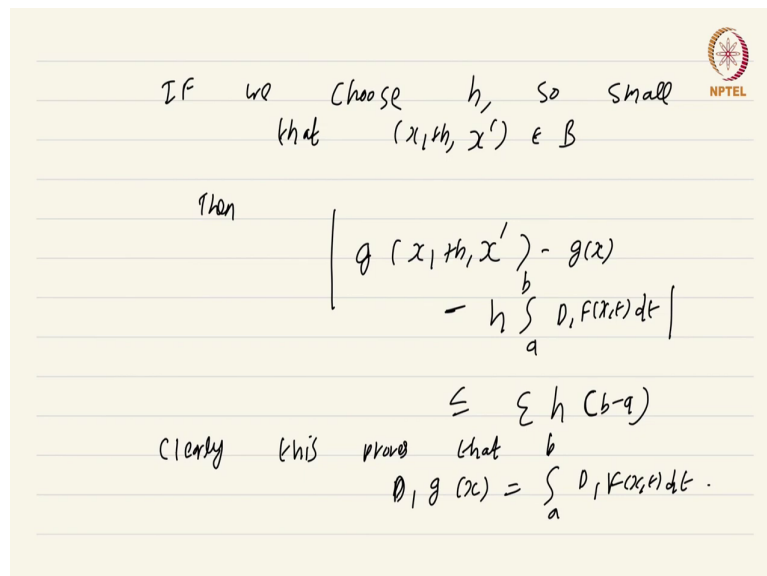 NPTEL
IF we choose h, so small
that (x₁+h, x′) ∈ B
Then
| g (x₁+h, x′) - g(x)
- h ∫ₐᵇ D₁F(x,t)dt |
≤ ε h (b-a)
Clearly this proves that
D₁g(x) = ∫ₐᵇ D₁F(x,t)dt.